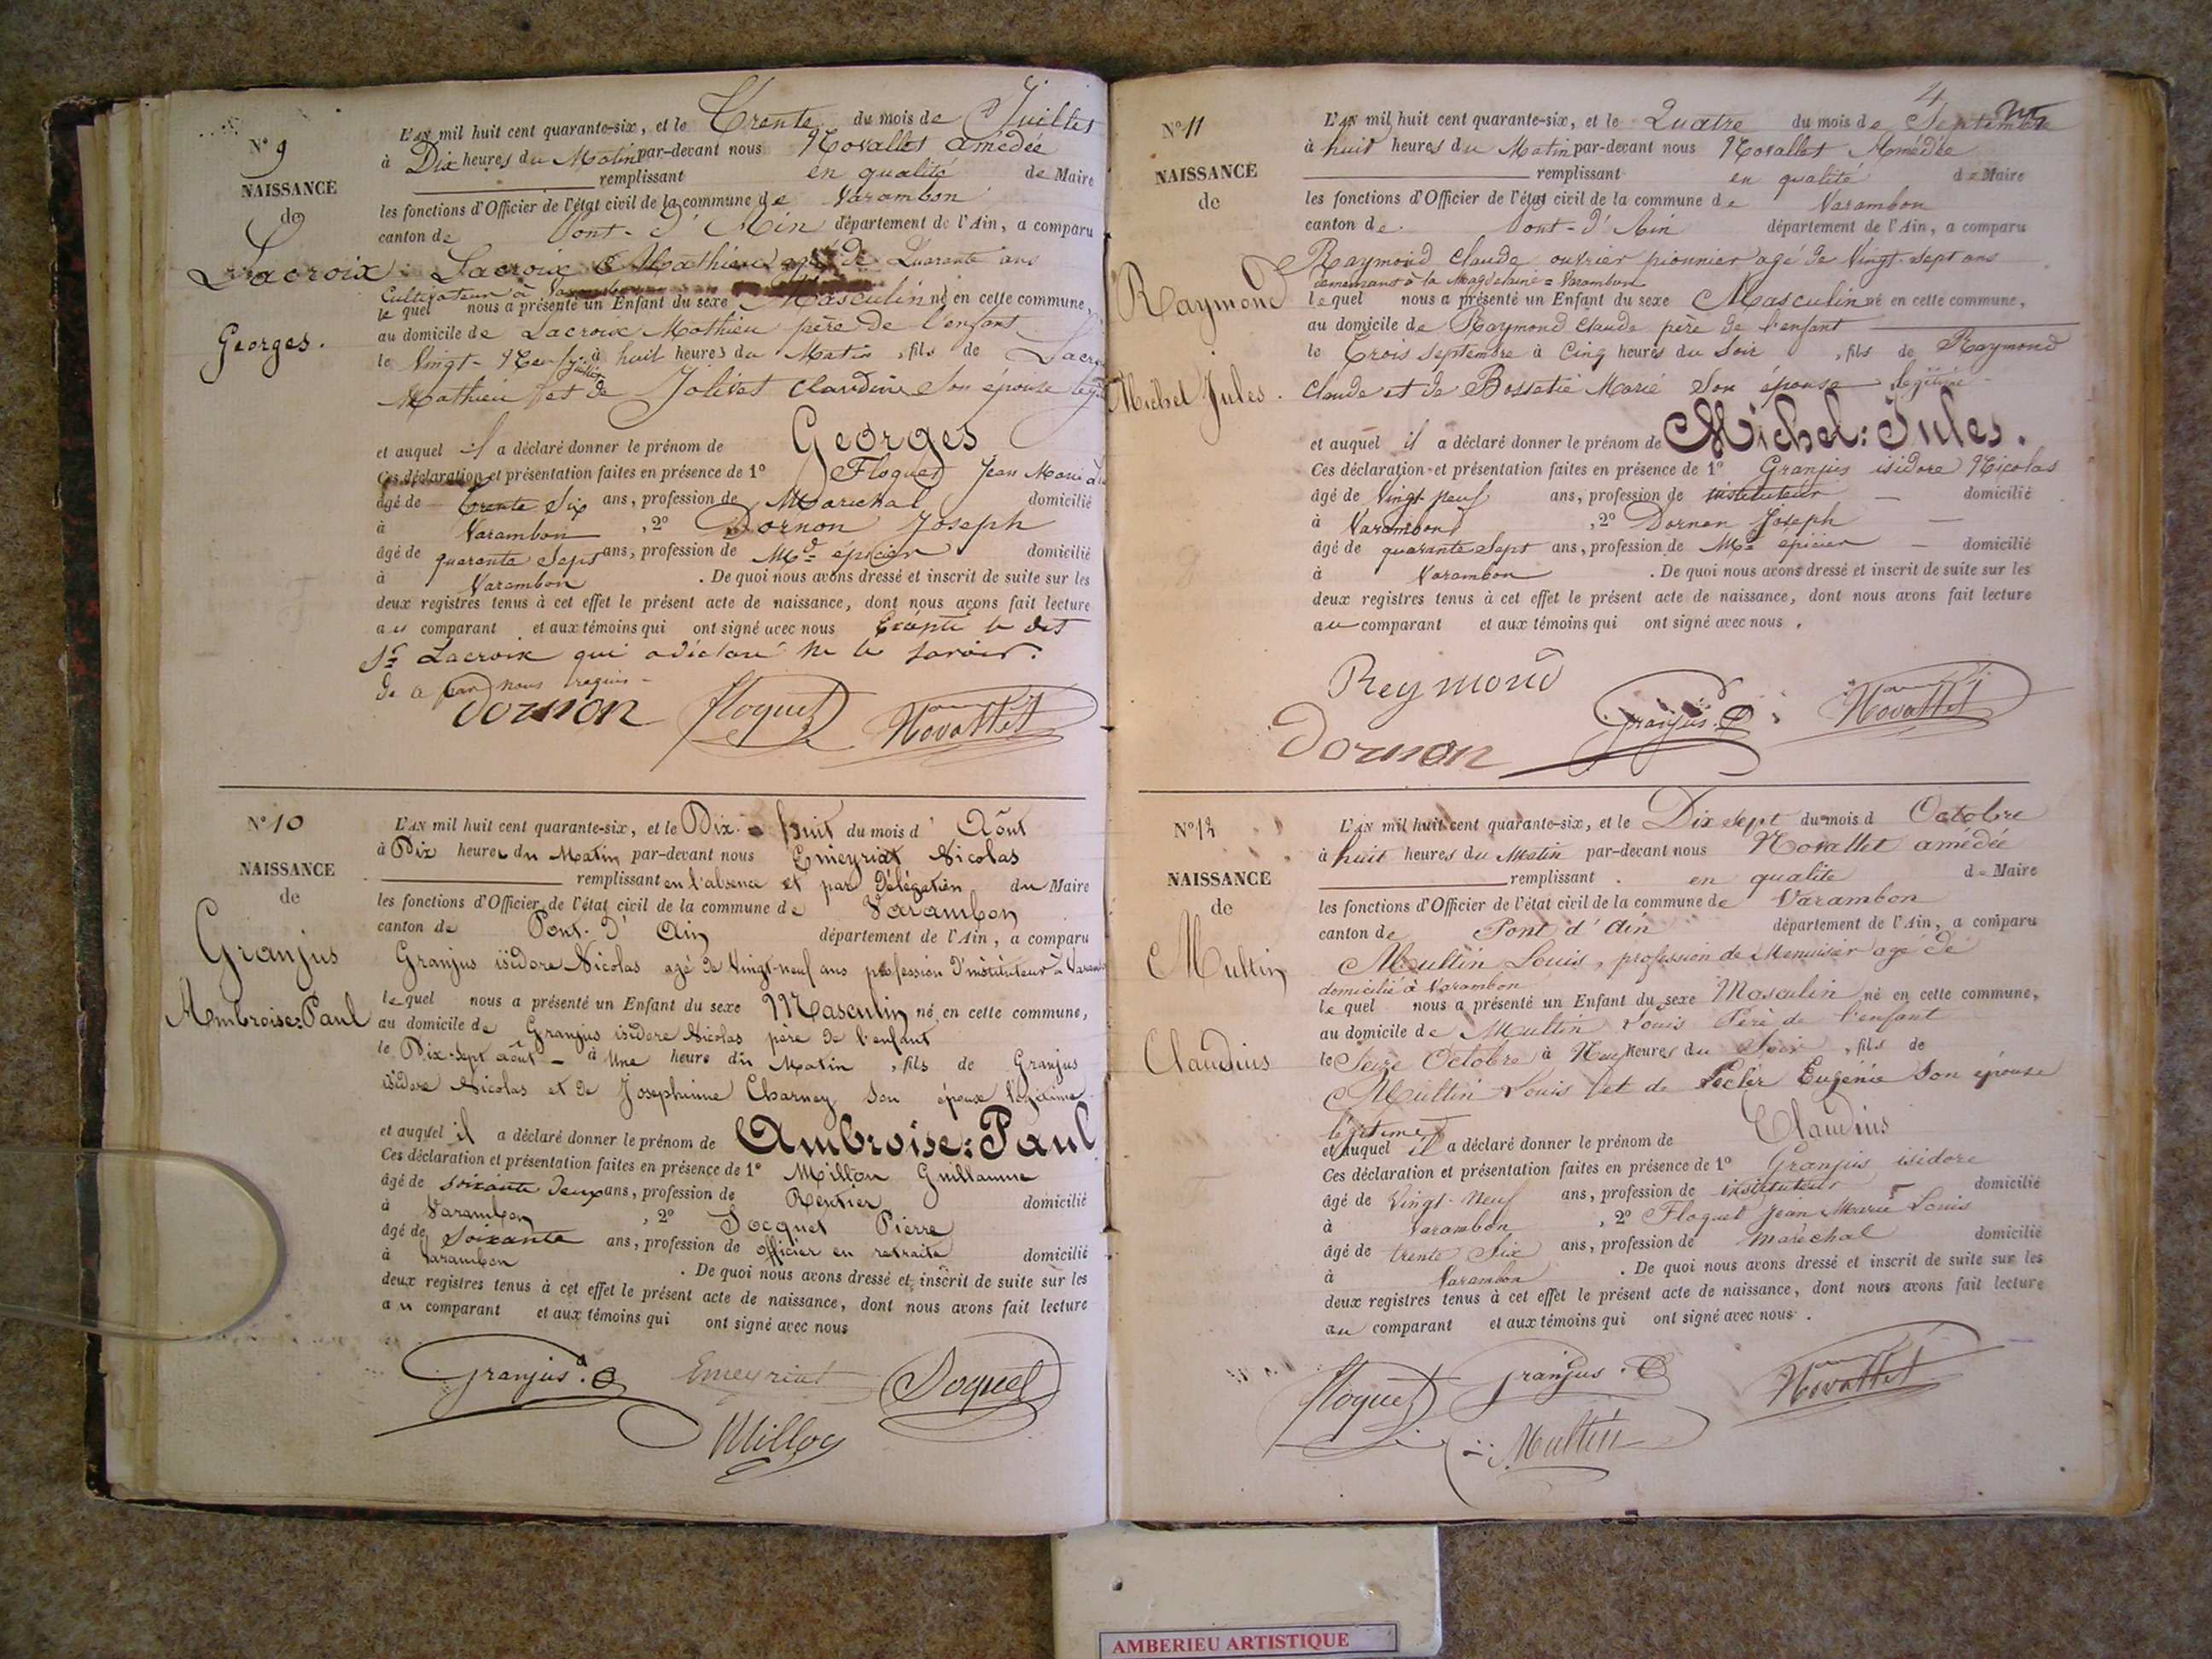 N° 9
NAISSANCE
de
Lacroix
Georges.
L'AN mil huit cent quarante-six, et le Trente du mois de Juillet
à Dix heures du Matin par-devant nous Novallet amédée
remplissant en qualité de Maire
les fonctions d'Officier de l'état civil de la commune de Varambon
canton de Pont-d'Ain département de l'Ain, a comparu
Lacroix Mathieu agé de Quarante ans
Cultivateur à
le quel nous a présenté un Enfant du sexe Masculin né en cette commune,
au domicile de Lacroix Mathieu père de l'enfant
le Vingt-Neuf juillet à huit heures du Matin, fils de
Mathieu et de Jolivet Claudine Son épouse
et auquel il a déclaré donner le prénom de Georges
Ces déclaration et présentation faites en présence de 1° Floquet Jean Marie
âgé de trente Six ans, profession de Marechal domicilié
à Varambon, 2° Dornon Joseph
âgé de quarante Sept ans, profession de Md épicier domicilié
à Varambon. De quoi nous avons dressé et inscrit de suite sur les
deux registres tenus à cet effet le présent acte de naissance, dont nous avons fait lecture
au comparant et aux témoins qui ont signé avec nous Excepté le dit
Sr Lacroix qui a déclaré ne le savoir.
de ce par nous requis
Dornon Floquet Novallet
N° 10
NAISSANCE
de
Granjus
Ambroise=Paul
L'AN mil huit cent quarante-six, et le Dix-huit du mois d'Aôut
à Dix heures du Matin par-devant nous Emeyriat Nicolas
remplissant en l'absence et par Délégation du Maire
les fonctions d'Officier de l'état civil de la commune de Varambon
canton de Pont-D'Ain département de l'Ain, a comparu
Granjus isidore Nicolas agé de Vingt-neuf ans profession D'instituteur à
lequel nous a présenté un Enfant du sexe Masculin né en cette commune,
au domicile de Granjus isidore Nicolas père de l'enfant
le Dix-Sept août - à Une heure du Matin, fils de Granjus
isidore Nicolas et de Josephinne Charney son épouse légitime
et auquel il a déclaré donner le prénom de Ambroise=Paul
Ces déclaration et présentation faites en présence de 1° Millon Guillaume
âgé de soixante deux ans, profession de Rentier domicilié
à Varambon, 2° Socquet Pierre
âgé de Soixante ans, profession de officier en retraite domicilié
à Varambon. De quoi nous avons dressé et inscrit de suite sur les
deux registres tenus à cet effet le présent acte de naissance, dont nous avons fait lecture
au comparant et aux témoins qui ont signé avec nous
Granjus Emeyriat Soquet
Millon
4
N° 11
NAISSANCE
de
Raymond
Michel Jules.
L'AN mil huit cent quarante-six, et le Quatre du mois de Septembre
à huit heures du Matin par-devant nous Novallet Amédée
remplissant en qualité de Maire
les fonctions d'Officier de l'état civil de la commune de Varambon
canton de Pont-d'Ain département de l'Ain, a comparu
Raymond Claude ouvrier pionnier agé de Vingt-Sept ans
demeurant à la Magdelaine = Varambon
lequel nous a présenté un Enfant du sexe Masculin né en cette commune,
au domicile de Raymond Claude père de l'enfant
le Trois Septembre à Cinq heures du Soir, fils de Raymond
Claude et de Marie Son épouse légitime
et auquel il a déclaré donner le prénom de Michel=Jules.
Ces déclaration et présentation faites en présence de 1° Granjus isidore Nicolas
âgé de Vingt neuf ans, profession de instituteur domicilié
à Varambon, 2° Dornon Joseph
âgé de quarante Sept ans, profession de Md épicier domicilié
à Varambon. De quoi nous avons dressé et inscrit de suite sur les
deux registres tenus à cet effet le présent acte de naissance, dont nous avons fait lecture
au comparant et aux témoins qui ont signé avec nous.
Reymond
Granjus Novallet
Dornon
N° 12
NAISSANCE
de
Multin
Claudius
L'AN mil huit cent quarante-six, et le Dix sept du mois d Octobre
à huit heures du Matin par-devant nous Novallet amédée
remplissant en qualité de Maire
les fonctions d'Officier de l'état civil de la commune de Varambon
canton de Pont d'Ain département de l'Ain, a comparu
Multin Louis, profession de Menuisier agé de
domicilié à Varambon
le quel nous a présenté un Enfant du sexe Masculin né en cette commune,
au domicile de Multin Louis Père de l'enfant
le Seize Octobre à Neuf heures du Soir, fils de
Multin Louis et de Eugénie Son épouse
légitime
et auquel il a déclaré donner le prénom de Claudius
Ces déclaration et présentation faites en présence de 1° Granjus isidore
âgé de Vingt-Neuf ans, profession de instituteur domicilié
à Varambon, 2° Floquet Jean Marie Louis
âgé de trente Six ans, profession de maréchal domicilié
à Varambon. De quoi nous avons dressé et inscrit de suite sur les
deux registres tenus à cet effet le présent acte de naissance, dont nous avons fait lecture
au comparant et aux témoins qui ont signé avec nous.
Floquet Granjus Novallet
Multin
AMBERIEU ARTISTIQUE